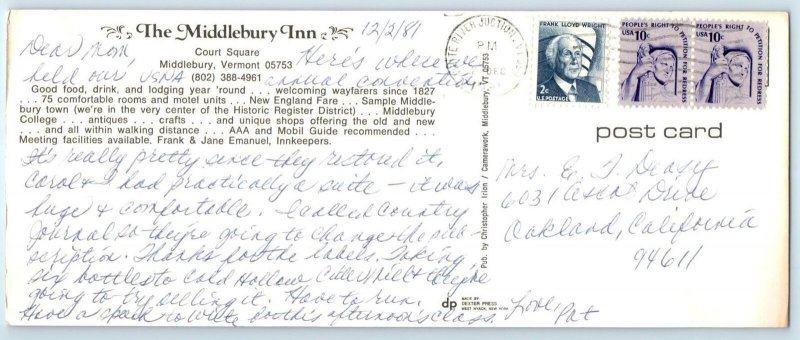 The Middlebury Inn
12/2/81
Dear Mom,
Court Square
Here's where we
Middlebury, Vermont 05753
held our VSNA (802) 388-4961 annual convention.
Good food, drink, and lodging year 'round . . . welcoming wayfarers since 1827
. . . 75 comfortable rooms and motel units . . . New England Fare . . . Sample Middle-
bury town (we're in the very center of the Historic Register District) . . . Middlebury
College . . . antiques . . . crafts . . . and unique shops offering the old and new
. . . and all within walking distance . . . AAA and Mobil Guide recommended . . .
Meeting facilities available. Frank & Jane Emanuel, Innkeepers.
It's really pretty since they restored it.
Carol & I had practically a suite – it was
huge & comfortable. I called Country
Journal so they're going to change the sub-
scription. Thanks for the labels. Taking
six bottles to Cold Hollow Cider Mill & they're
going to try selling it. Have to run.
Have a speech to write for this afternoon's class.
Love, Pat
Pub. by Christopher Irion / Camerawork, Middlebury, VT 05753
dp
MADE BY
DEXTER PRESS
WEST NYACK, NEW YORK
WHITE RIVER JUCTION, VT
PM
DEC
FRANK LLOYD WRIGHT
2c
U.S. POSTAGE
PEOPLE'S RIGHT TO PETITION FOR REDRESS
USA 10c
PEOPLE'S RIGHT TO PETITION FOR REDRESS
USA 10c
post card
Mrs. E. J.
6031 Ascot Drive
Oakland, California
94611